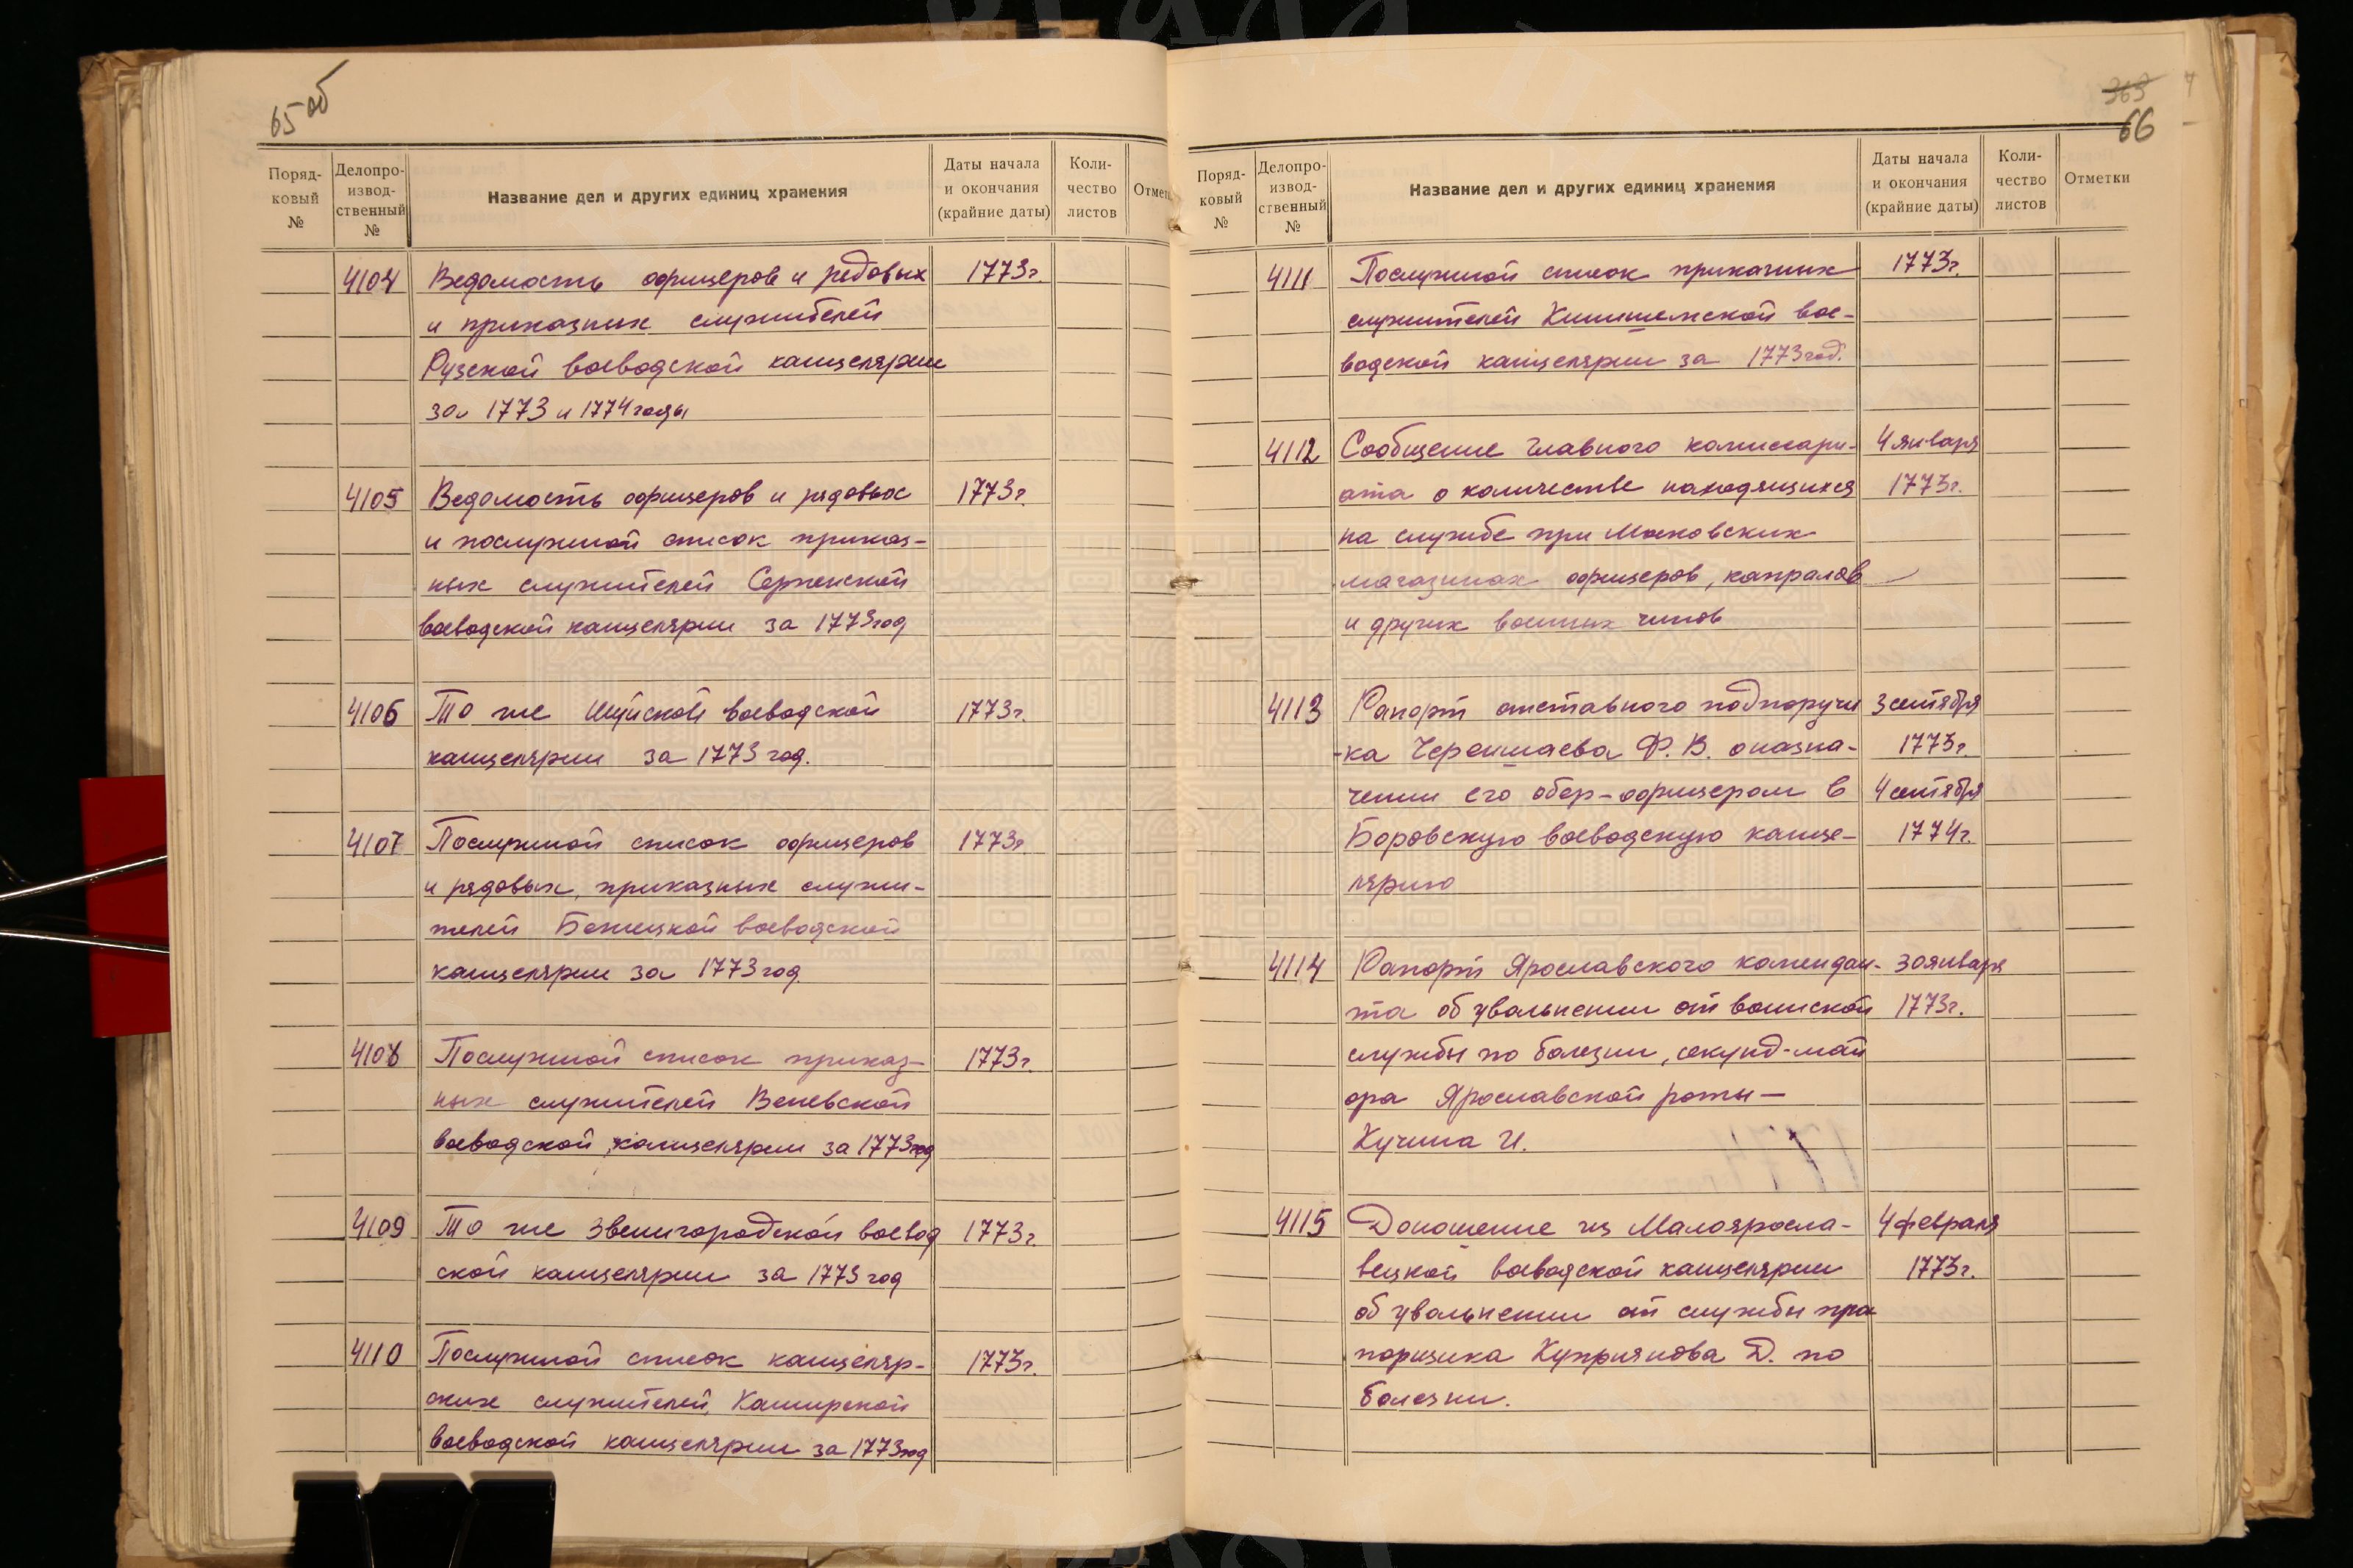 65 об
Поряд-
ковый
№
Делопро-
извод-
ственный
№
Название дел и других единиц хранения
Даты начала
и окончания
(крайние даты)
Коли-
чество
листов
4104 Ведомость офицеров и рядовых 1773г.
и приказных служителей
Рузской воеводской канцелярии
за 1773 и 1774 годы
4105 Ведомость офицеров и рядовых 1773г
и послужной список приказ-
ных служителей Серпейской
воеводской канцелярии за 1773 год
4106 То же Шуйской воеводской 1773г.
канцелярии за 1773 год.
4107 Послужной список офицеров 1773г
и рядовых, приказных служи-
телей Бежецкой воеводской
канцелярии за 1773 год.
4108 Послужной список приказ- 1773г.
ных служителей Веневской
воеводской канцелярии за 1773 год
4109 То же Звенигородской воевод 1773г.
ской канцелярии за 1773 год
4110 Послужной список канцеляр- 1773г.
ских служителей Каширской
воеводской канцелярии за 1773 год
363
66
Поряд-
ковый
№
Делопро-
извод-
ственный
№
Название дел и других единиц хранения
Даты начала
и окончания
(крайние даты)
Коли-
чество
листов
Отметки
4111 Послужной список приказных 1773г.
служителей Кинешемской вое-
водской канцелярии за 1773 год.
4112 Сообщение Главного комиссари- 4 января
ата о количестве находящихся 1773г.
на службе при Московских
магазинах офицеров, капралов
и других воинных чинов
4113 Рапорт отставного подпоручи 3 сентября
-ка Ф. В. о назна- 1773г.
чении его обер-офицером в 4 сентября
Боровскую воеводскую канце- 1774г.
лярию
4114 Рапорт Ярославского комендан- 30 января
та об увальнении от воинской 1773г.
службы по болезни, секунд-май
ора Ярославской роты —
Кучина И.
4115 Доношение из Малояросла- 4 февраля
вецкой воеводской канцелярии 1773г.
об увальнении от службы пра
порщика Куприянова Д. по
болезни.